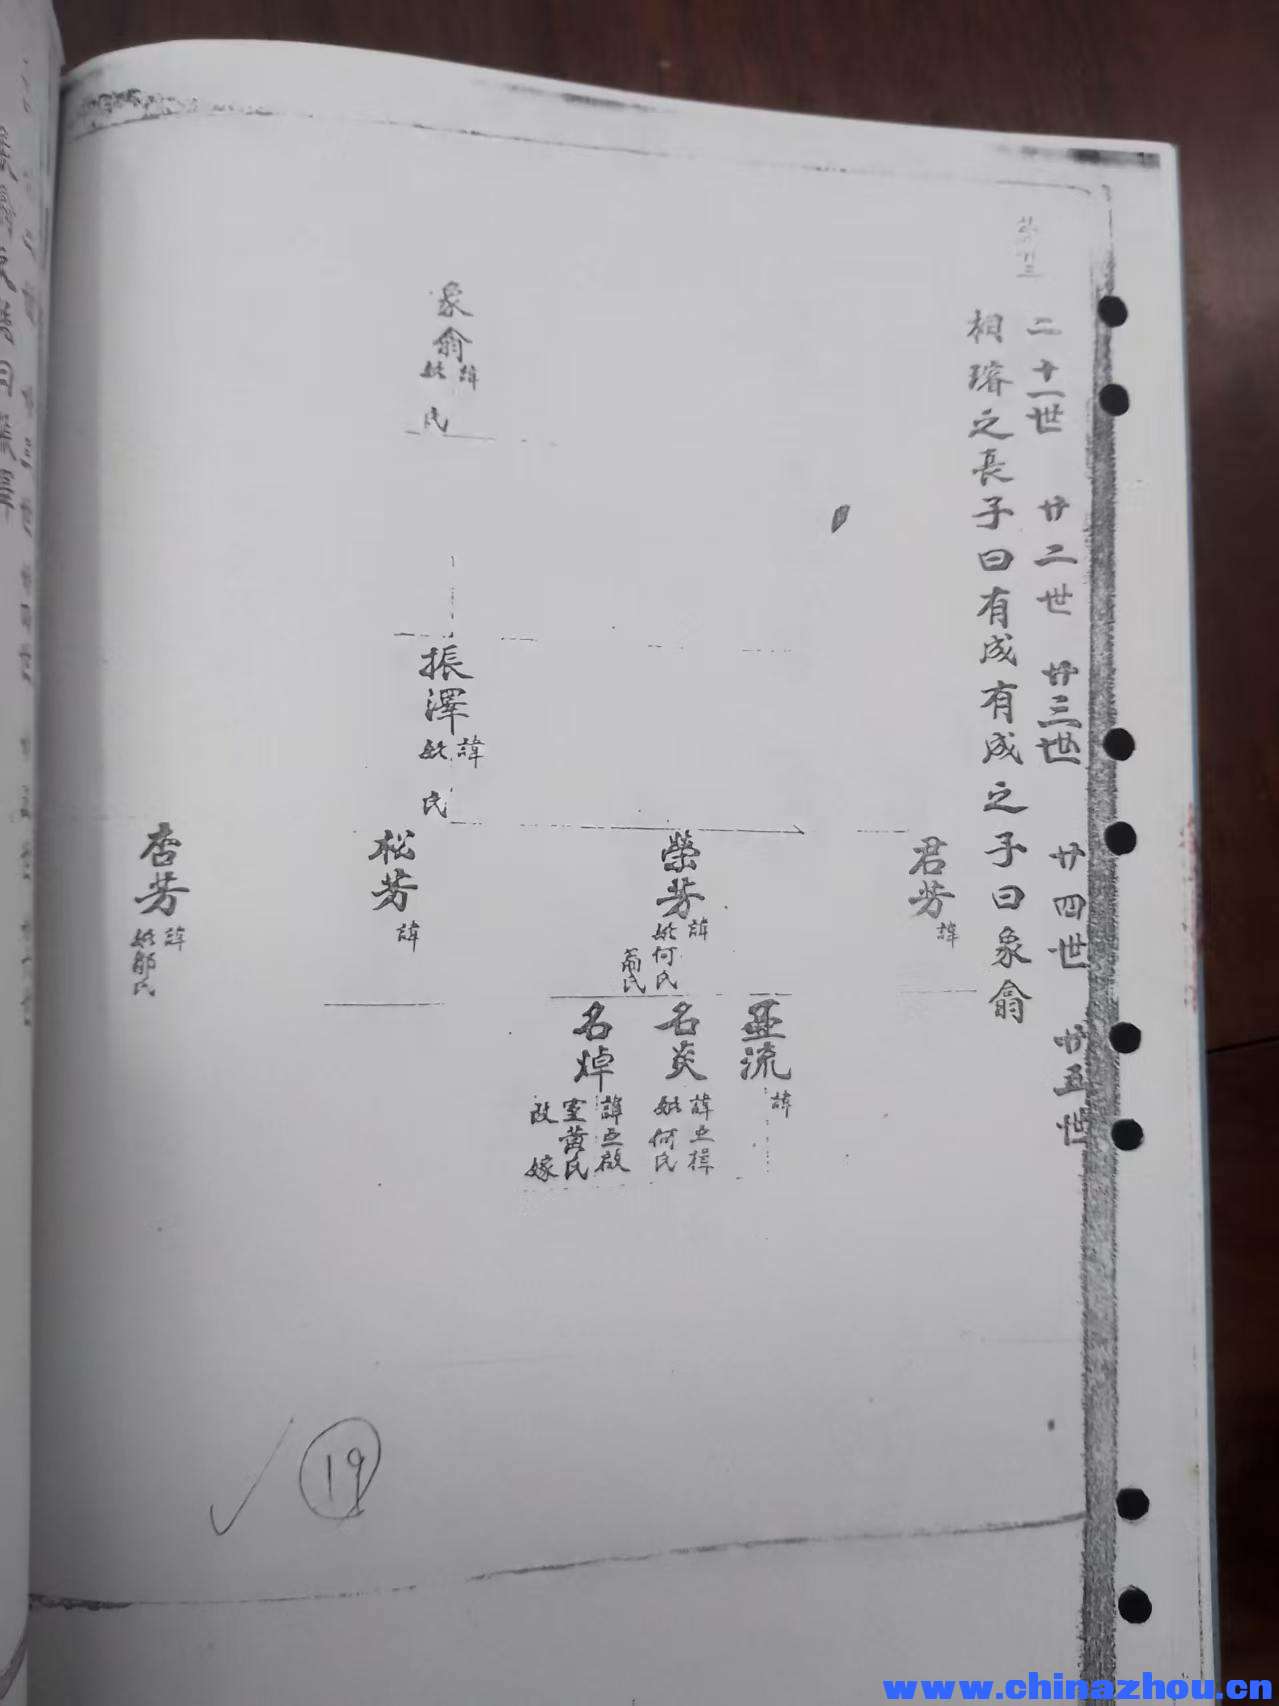 二十一世 廿二世 廿三世 廿四世 廿五世
相璿之長子曰有成有成之子曰象翕
象翕
諱
妣 氏
振澤
諱
妣 氏
君芳
諱
榮芳
諱
妣何氏
氏
松芳
諱
杏芳
諱
妣鄔氏
亞流
諱
名炎
諱亞楫
妣何氏
名焯
諱亞啟
室黃氏
改嫁
19
www.chinazhou.cn